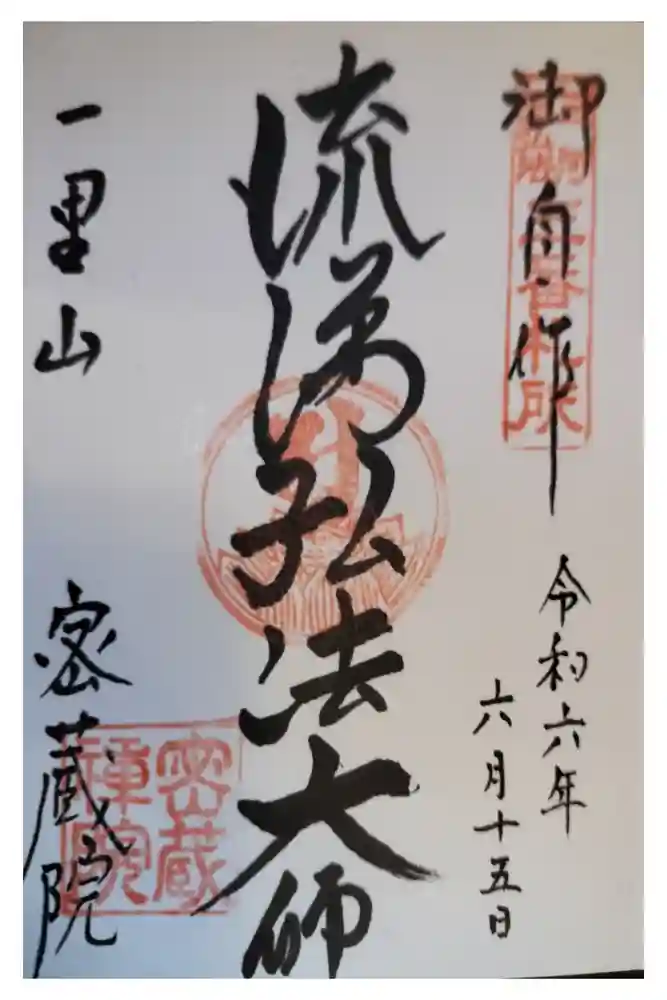 御自作
三番札所
令和六年
六月十五日
流涕弘法大師
一里山
密蔵院
密蔵
禅院